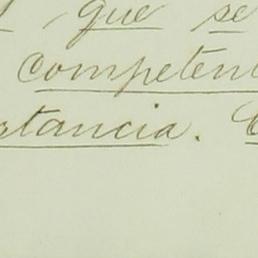 que se
competen
stancia.